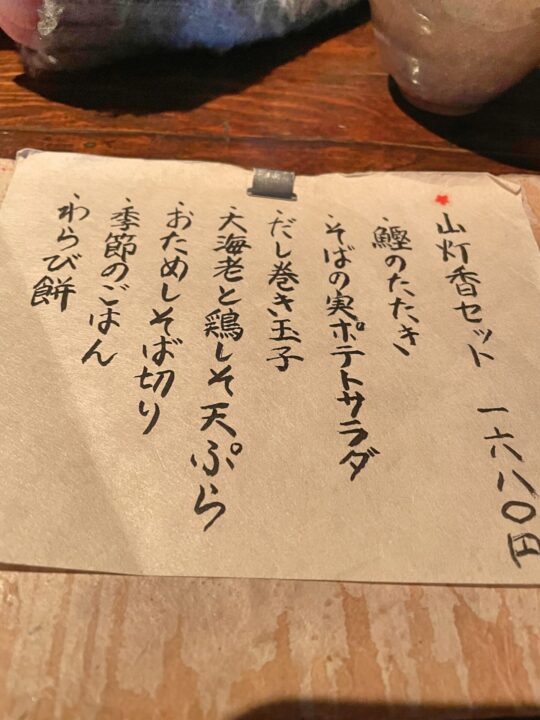 山灯香セット 一六八〇円
・鰹のたたき
・そばの実ポテトサラダ
・だし巻き玉子
・大海老と鶏しそ天ぷら
・おためしそば切り
・季節のごはん
・わらび餅